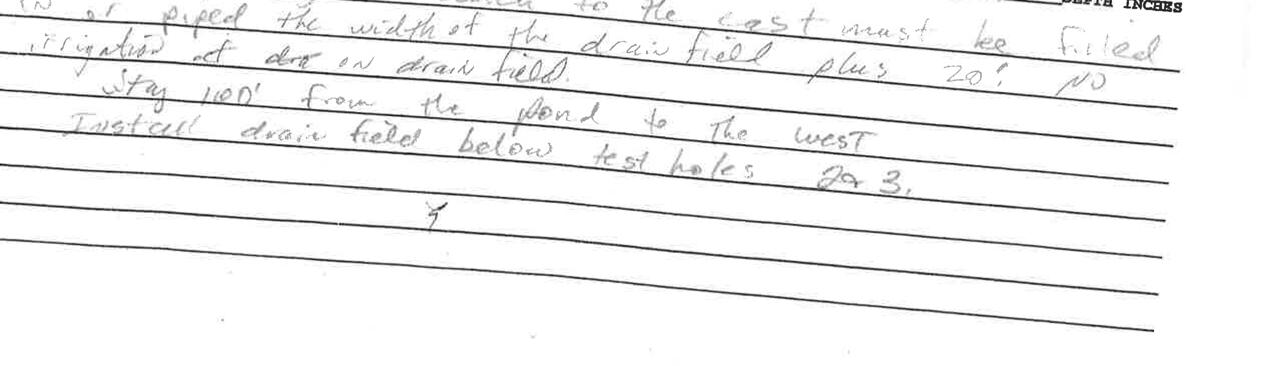 DEPTH INCHES
to the east must be filled
in or piped the width of the drain field plus 20'. NO
irrigation at on drain field.
Stay 100' from the pond to The west
Install drain field below test holes 2 & 3.